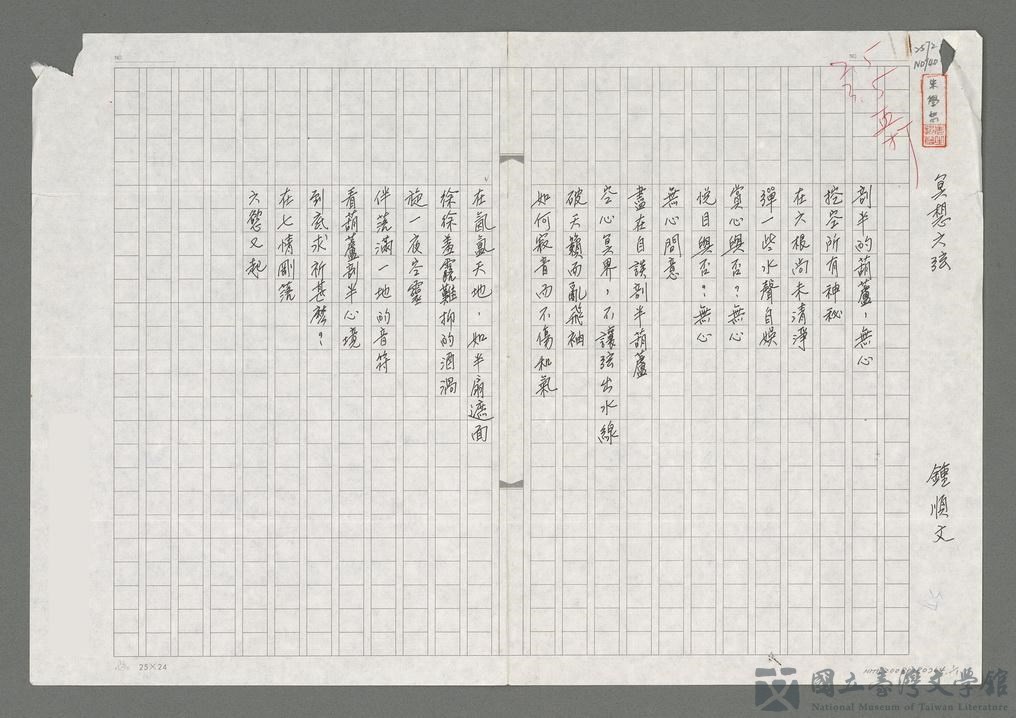 冥想六弦
鍾順文
剖半的葫蘆，無心
控空所有神秘
在六根尚未清淨
彈一些水聲自娛
賞心與否？無心
悅目與否？無心
無心問意
盡在自談剖半葫蘆
空心冥界，不讓弦出水線
破天籟而亂飛袖
如何寂音而不傷和氣
在氤氳天地，如半扇遮面
徐徐羞露難抑的酒渦
旋一夜空靈
伴落滿一地的音符
看葫蘆剖半心境
到底求祈甚麼？
在七情剛落
六慾又起
25/2
NO/40
朱學恕
NO.
NO.
25×24
國立臺灣文學館
National Museum of Taiwan Literature